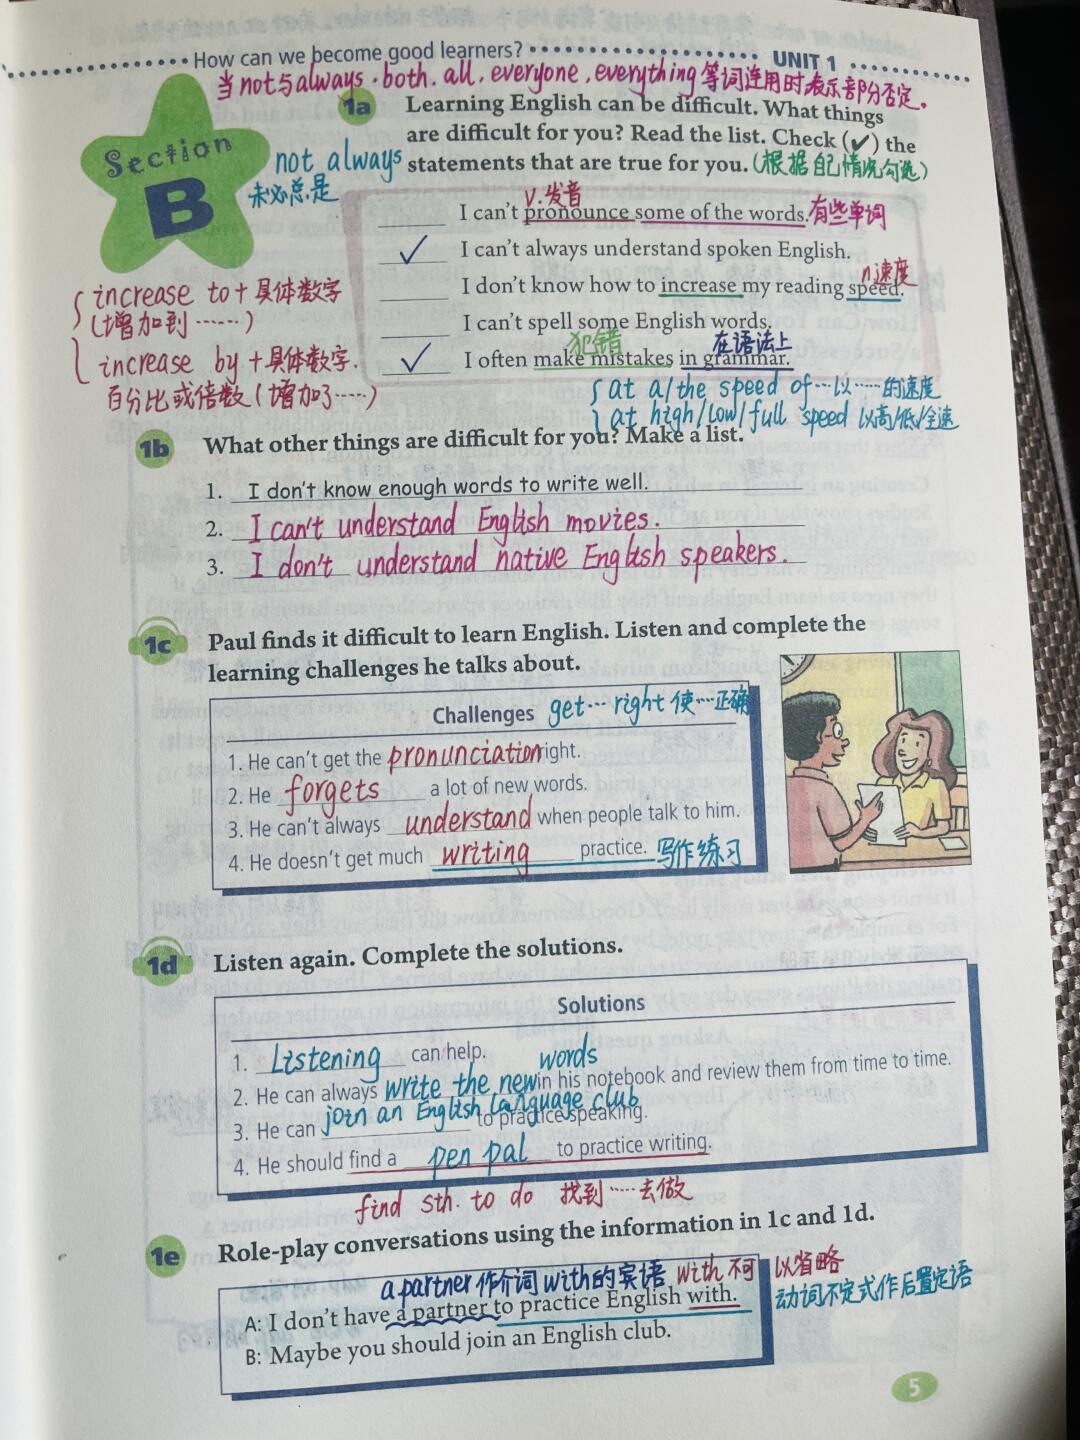 How can we become good learners? UNIT 1
当not与always.both.all.everyone.everything等词连用时表示部分否定。
Section B
1a Learning English can be difficult. What things
are difficult for you? Read the list. Check (✓) the
statements that are true for you.(根据自己情况勾选)
not always
未必总是
v.发音
I can't pronounce some of the words.有些单词
✓ I can't always understand spoken English.
n速度
I don't know how to increase my reading speed.
I can't spell some English words.
犯错 在语法上
✓ I often make mistakes in grammar.
{increase to+具体数字
(增加到……)
increase by+具体数字.
百分比或倍数(增加了……)
{at a/the speed of…以……的速度
at high/low/full speed 以高/低/全速
1b What other things are difficult for you? Make a list.
1. I don't know enough words to write well.
2. I can't understand English movies.
3. I don't understand native English speakers.
1c Paul finds it difficult to learn English. Listen and complete the
learning challenges he talks about.
Challenges get…right 使…正确
1. He can't get the pronunciation right.
2. He forgets a lot of new words.
3. He can't always understand when people talk to him.
4. He doesn't get much writing practice. 写作练习
1d Listen again. Complete the solutions.
Solutions
1. Listening can help.
words
2. He can always write the new in his notebook and review them from time to time.
3. He can join an English language club to practice speaking.
4. He should find a pen pal to practice writing.
find sth. to do 找到……去做
1e Role-play conversations using the information in 1c and 1d.
a partner作介词with的宾语 with可以省略
动词不定式作后置定语
A: I don't have a partner to practice English with.
B: Maybe you should join an English club.
5